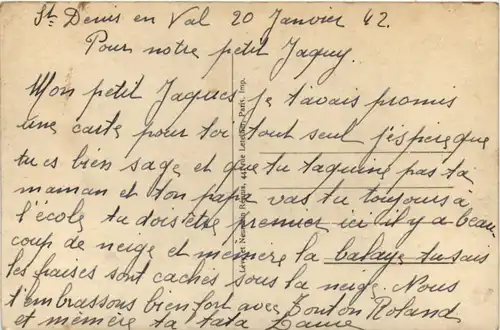 St Denis en Val 20 Janvier 42.
Pour notre petit Jaquy.
Mon petit Jaques je t'avais promis
une carte pour toi tout seul j'espère que
tu es bien sage et que tu taquine pas ta
maman et ton papa vas tu toujours a
l'école tu dois être premier ici il y a beau
coup de neige et mémère la balaye tu sais
les fraises sont cachés sous la neige. Nous
t'embrassons bien fort avec Tonton Roland
et mémère ta tata
Lévy et Neurdein Réunis, 44, rue Letellier, Paris. Imp.